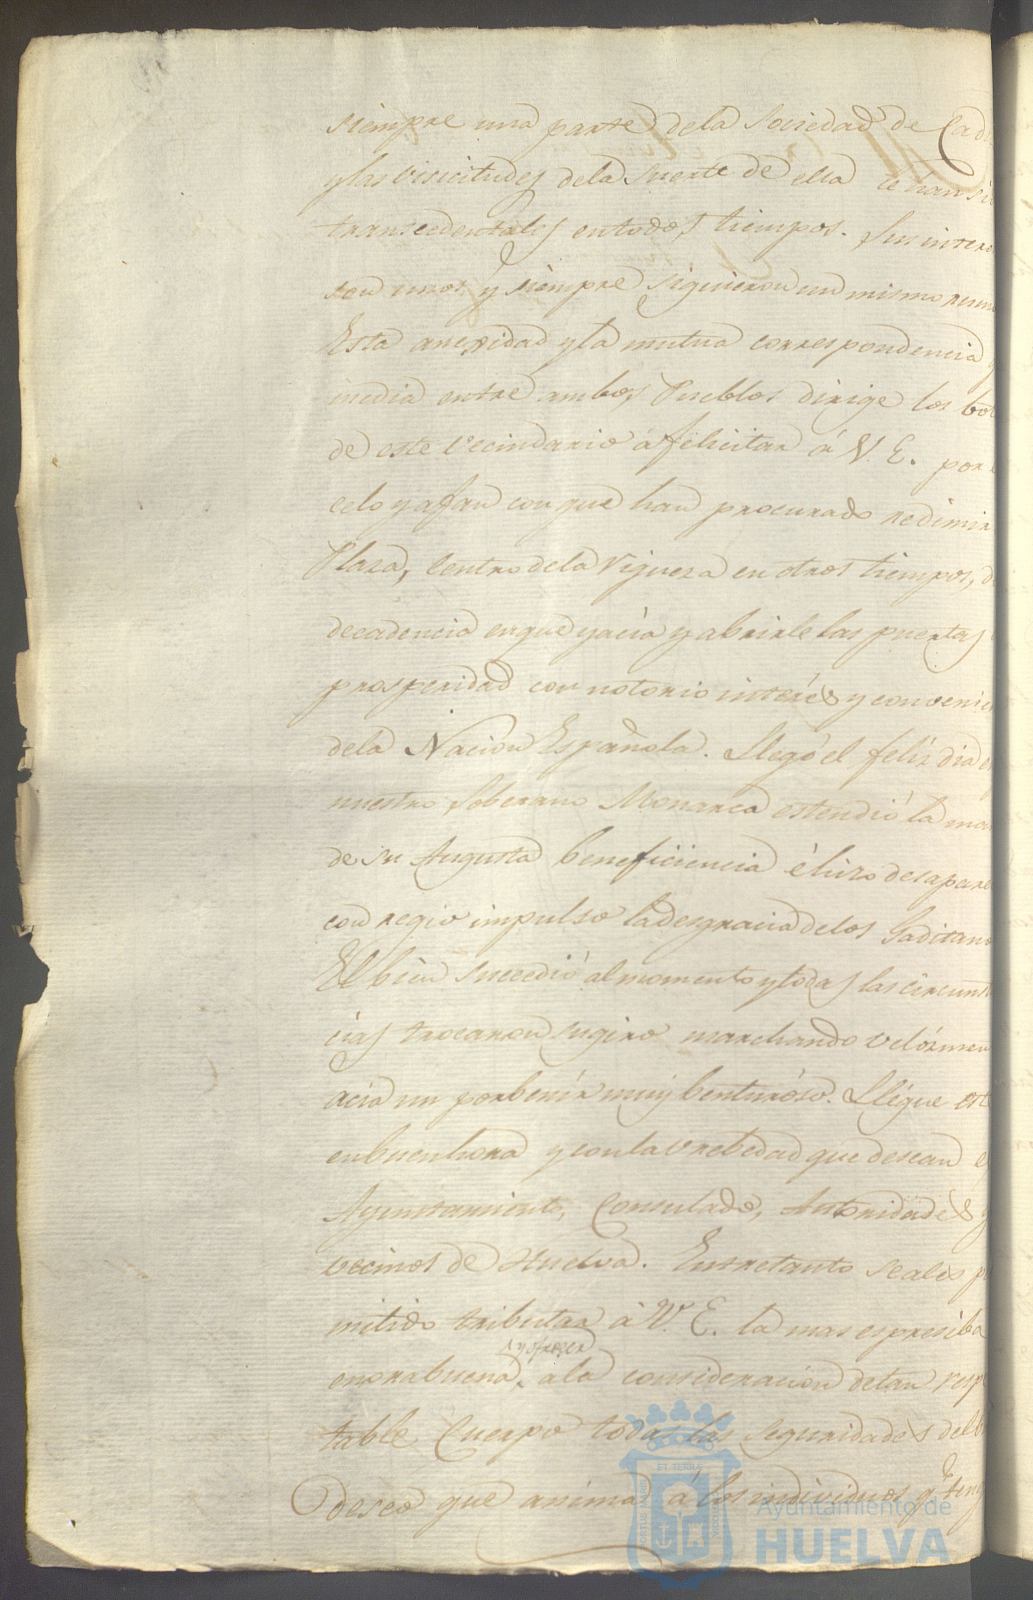 siempre una parte dela Sociedad de Cad
y las visicitudes dela Suerte de ella le han si
transcedentales entodos tiempos. Sus intere
son unos y siempre siguieron un mismo rum
Esta anexidad y la mutua correspondencia
media entre ambos Pueblos dirige los vot
de este Vecindario á felicitar á V. E. por
celo y afan con que han procurado redimir
Plaza, Centro dela Riqueza en otros tiempos, d
decadencia enque yacia y abrirle las puertas
prosperidad con notorio interés y convenien
dela Nacion Española. Llegó el feliz dia
nuestro Soberano Monarca estendió la ma
de su Augusta beneficiencia é hizo desapare
con regio impulso la desgracia delos Gaditano
El bien succedió al momento y todas las circuns
cias trocaron su giro marchando velózmen
acia un porbenir muy benturóso. Llégue est
enbuenhora y conla vrebedad que desean e
Ayuntamiento, Consulado, Autoridades y
vecinos de Huelva. Entretanto seales p
mitido tributar á V. E. la mas espresiba
y ofrecer
enorabuena, ala consideracion detan resp
table Cuerpo todas las seguridades del
deseo que anima á los individuos q. teng
Ayuntamiento de
HUELVA